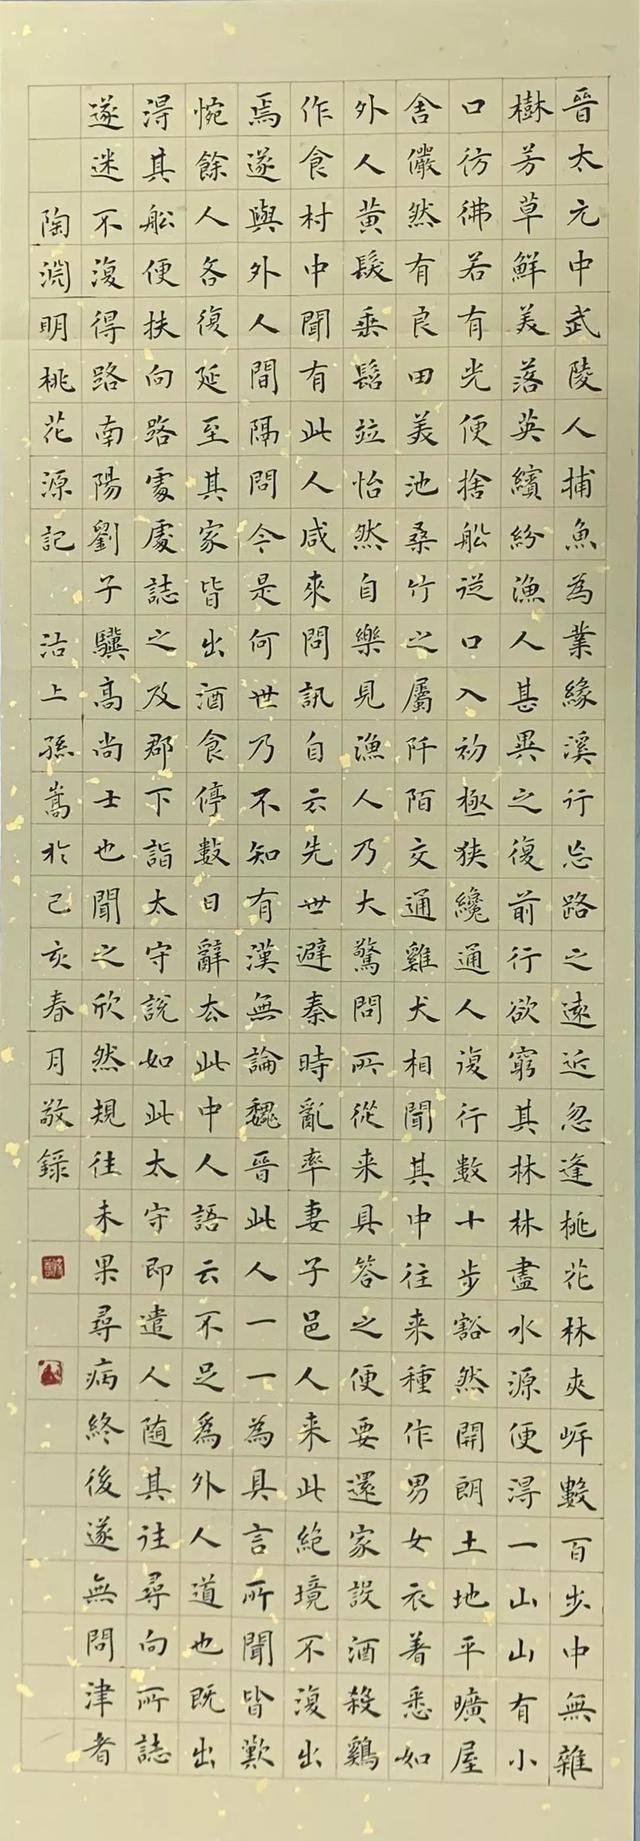 晉太元中武陵人捕魚為業緣溪行忘路之遠近忽逢桃花林夾岸數百步中無雜
樹芳草鮮美落英繽紛漁人甚異之復前行欲窮其林林盡水源便得一山山有小
口彷彿若有光便捨船從口入初極狹纔通人復行數十步豁然開朗土地平曠屋
舍儼然有良田美池桑竹之屬阡陌交通雞犬相聞其中往来種作男女衣著悉如
外人黃髮垂髫竝怡然自樂見漁人乃大驚問所從来具答之便要還家設酒殺鷄
作食村中聞有此人咸來問訊自云先世避秦時亂率妻子邑人来此絕境不復出
焉遂與外人間隔問今是何世乃不知有漢無論魏晉此人一一為具言所聞皆歎
惋餘人各復延至其家皆出酒食停數日辭去此中人語云不足爲外人道也既出
得其船便扶向路處處誌之及郡下詣太守說如此太守即遣人随其往尋向所誌
遂迷不復得路南陽劉子驥高尚士也聞之欣然規往未果尋病終後遂無問津者
陶淵明桃花源記 沽上孫嵩於己亥春月敬錄